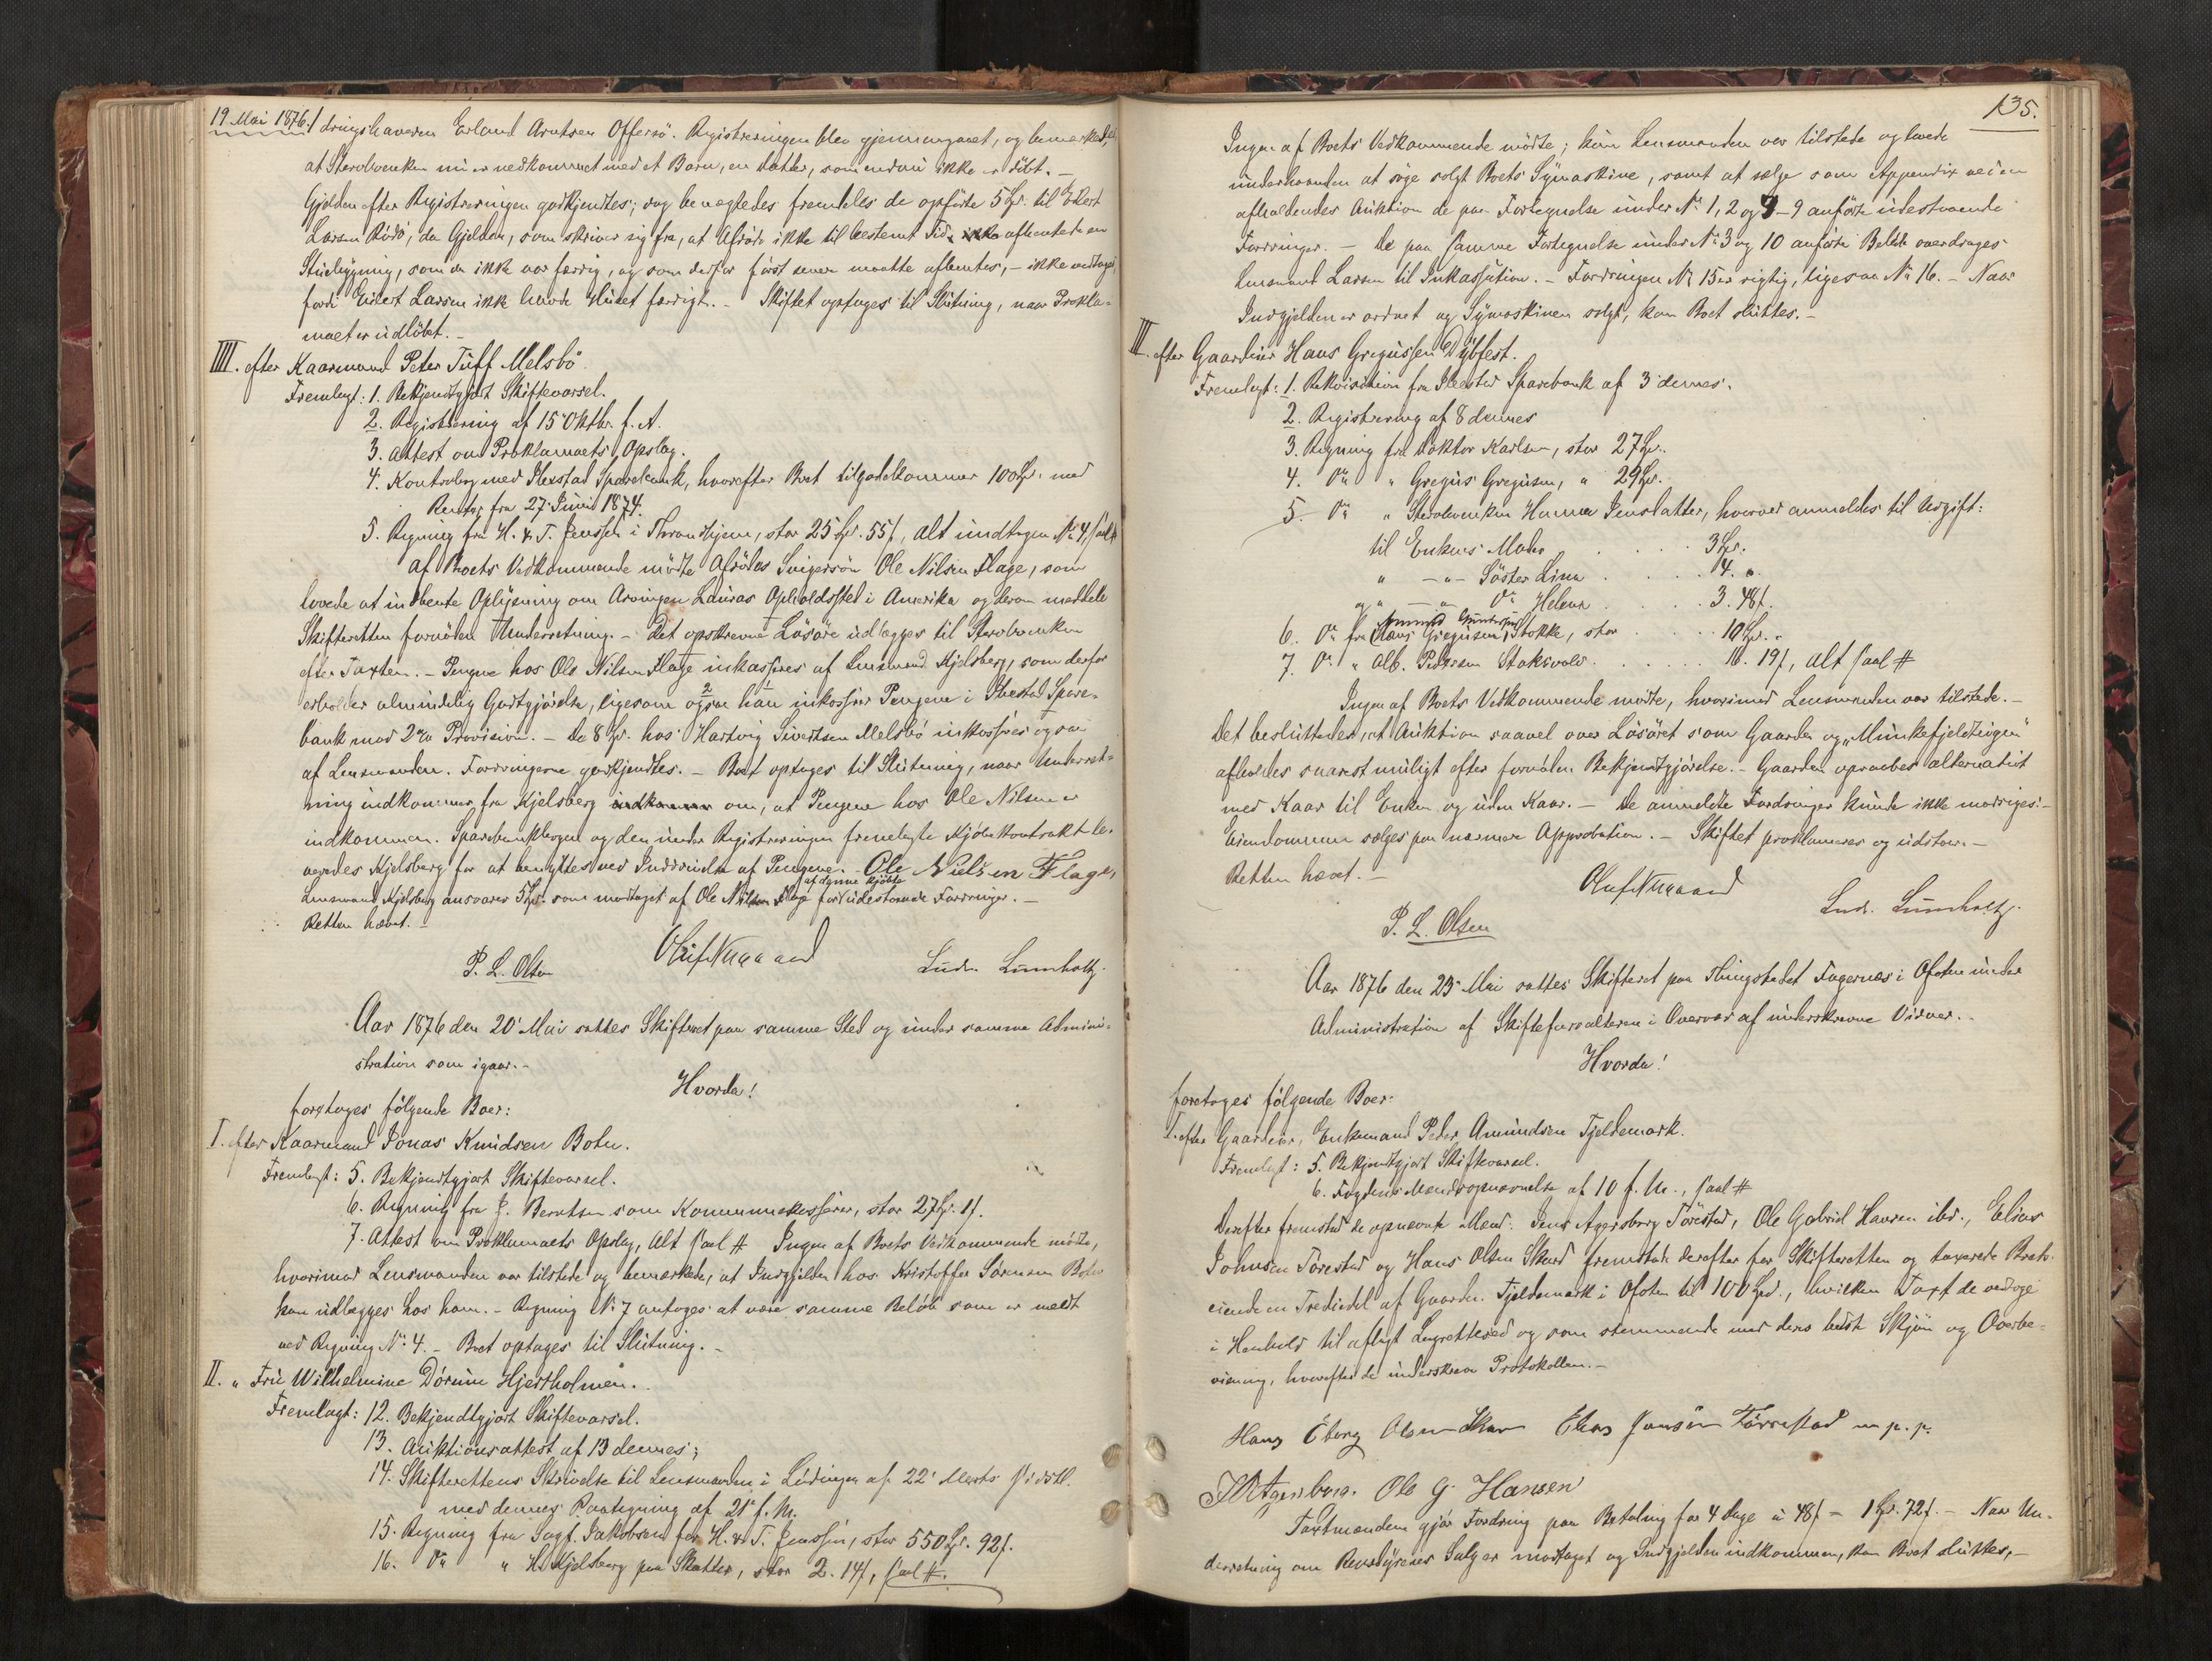 19 Mai 1876.
dringshaveren Erland Arntsen Offersö. Registreringen blev gjennemgaaet, og bemærkedes,
at Stervboenken nu er nedkommet med et Barn, en Datter, som endnu ikke er döbt. —
Gjelden efter Registreringen godkjendtes; dog benegtedes fremdeles de opförte 5 Spd. til Eilert
Larsen Rödö, da Gjelden, som skriver sig fra, at Aföde ikke til bestemt Tid afhentede en
Stuebygning, som da ikke var færdig, og som derfor först senere maatte afhentes, — ikke vedtages
fordi Eilert Larsen ikke havde Huset færdigt. — Skiftet optages til Slutning, naar Prokla-
maet er udlöbet. —
IIII. efter Kaarmand Peter Tuff Melsbö.
Fremlagt: 1. Bekjendtgjort Skiftevarsel.
2. Registrering af 15 Oktbr. f. A.
3. Attest om Proklamaets Opslag.
4. Kontrabog med Ibestad Sparebank, hvorefter Boet tilgodekommer 100 Spd. med
Renter fra 27 Juni 1874.
5. Regning fra H. & T. Jenssen i Throndhjem, stor 25 Spd. 55 s, Alt undtagen No 4, saal. #
Af Boets Vedkommende mödte Afdödes Svigersön Ole Nilsen Flage, som
lovede at indhente Oplysning om Arvingen Lauras Opholdssted i Amerika og derom meddele
Skifteretten fornöden Underretning. — Det opskrevne Lösöre udlægges til Stervboenken
efter Taxten. — Pengene hos Ole Nilsen Flage inkasseres af Lensmand Kjelsberg, som derfor
erholder almindelig Godtgjörelse, ligesom ogsaa han inkasserer Pengene i Ibestad Spare-
bank mod 2% Provision. — De 8 Spd. hos Hartvig Sivertsen Melsbö inkasseres ogsaa
af Lensmanden. Fordringerne godkjendtes. — Boet optages til Slutning, naar Underret-
ning indkommer fra Kjelsberg om, at Pengene hos Ole Nilsen er
indkommen. Sparebankbogen og den under Registreringen fremlagte Kjöbekontrakt le-
veredes Kjelsberg for at benyttes ved Inddrivelse af Pengene. Ole Nielsen Flage,
Lensmand Kjelsberg ansvarer 5 Spd. som modtaget af Ole Nilsen Flage for af denne kjöbte udestaaende Fordringer. —
Retten hævet. —
P. L. Olsen
Ludv. Lumholtz.
Aar 1876 den 20 Mai sattes Skifteret paa samme Sted og under samme Admini-
stration som igaar. —
Hvorda!
foretoges fölgende Boer:
I. efter Kaarmand Jonas Knudsen Botn.
Fremlagt: 5. Bekjendtgjort Skiftevarsel.
6. Regning fra J. Berntsen som Kommunekasserer, stor 27 Spd. 1 s.
7. Attest om Proklamaets Opslag, Alt saal. # Ingen af Boets Vedkommende mödte,
hvorimod Lensmanden var tilstede og bemærkede, at Indgjelden hos Kristoffer Sörensen Botn
kan udlægges hos ham. — Regning No 7 antoges at være samme Belöb som er meldt
ved Regning No 4. — Boet optages til Slutning. —
II. " Fru Wilhelmine Dorum Hjertholmen.
Fremlagt: 12. Bekjendtgjort Skiftevarsel.
13. Auktionsattest af 13 dennes;
14. Skifterettens Skrivelse til Lensmanden i Lödingen af 22 Marts sidstl.
med dennes Paategning af 21 f. M.
15. Regning fra Sagf. Jakobsen for H. & T. Jenssen, stor 550 Spd. 92 s.
16. Do " H. Kjelsberg paa Skatter, stor 2. 14 s, saal. #.
135.
Ingen af Boets Vedkommende mödte; kun Lensmanden var tilstede og lovede
underhaanden at söge solgt Boets Symaskine, samt at sælge som Appendix ved en
afholdendes Auktion de paa Fortegnelse under No 1, 2 og 4-9 anförte udestaaende
Fordringer. — De paa samme Fortegnelse under No 3 og 10 anförte Belöb overdrages
Lensmand Larsen til Inkassation. — Fordringen No 15 er rigtig, ligesaa No 16. — Naar
Indgjelden er ordnet og Symaskinen solgt, kan Boet sluttes. —
III. efter Gaardeier Hans Gregussen Dybfest.
Fremlagt: 1. Rekvisition fra Ibestad Sparebank af 3 dennes.
2. Registrering af 8 dennes
3. Regning fra Doktor Karlsen, stor 27 Spd.
4. Do " Gregus Gregusen, " 29 Spd.
5. Do " Stervboenken Hanna Jensdatter, hvorved anmeldes til Udgift:
til Enkens Moder . . . . 3 Spd.
" — " — Söster Lina . . . . 4. "
og " — " — Do Helena . . . . 3. 48 s.
6. Do fra Stokke, stor . . . . 10 Spd. "
7. Do " Alb. Pedersen Stoksvold . . . . 16. 19 s, Alt saal. #
Ingen af Boets Vedkommende mödte, hvorimod Lensmanden var tilstede. —
Det besluttedes, at Auktion saavel over Lösöret som Gaarden og "Munkefjeldteigen"
afholdes snarest muligt efter fornöden Bekjendtgjörelse. — Gaarden opraabes alternativt
med Kaar til Enken og uden Kaar. — De anmeldte Fordringer kunde ikke modsiges. —
Eiendommene sælges paa nærmere Approbation. — Skiftet proklameres og udstaar. —
Retten hævet. —
P. L. Olsen
Ludv. Lumholtz.
Aar 1876 den 23 Mai sattes Skifteret paa Thingstedet Fagernæs i Ofoten under
Administration af Skifteforvalteren i Overvær af underskrevne Vidner. —
Hvorda!
foretoges fölgende Boer:
I. efter Gaardeier, Enkemand Peder Amundsen Tjeldemark.
Fremlagt: 5. Bekjendtgjort Skiftevarsel.
6. Fogdens Mændsopnævnelse af 10 f. M., saal. #
Derefter fremstod de opnævnte Mænd: Jens Agersborg Törestad, Ole Gabriel Hansen ibd., Elias
Johnsen Törestad og Hans Olsen Skard fremstode derefter for Skifteretten og taxerede Boets
eiende en Trediedel af Gaarden Tjeldemark i Ofoten til 100 Spd., hvilken Taxt de vedtoge
i Henhold til aflagt Lagretteed og som stemmende med deres bedste Skjön og Overbe-
visning, hvorefter de underskrev Protokollen. —
Hans Eberg Olsen Skar Elias Jonsön Törrestad m. p. p.
Agersborg. Ole G. Hansen
Taxtmændene gjör Fordring paa Betaling for 4 Dage à 48 s = 1 Spd. 72 s. — Naar Un-
derretning om Rensdyrenes Salg er modtaget og Indgjelden indkommen, kan Boet sluttes, —